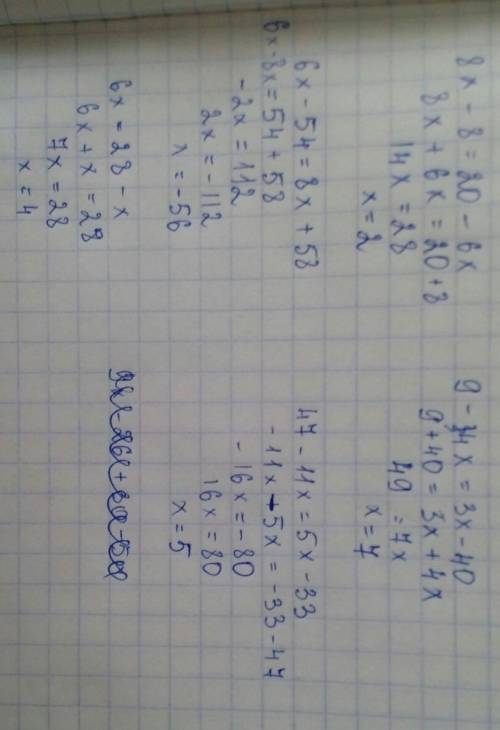 8x - 8 = 20 - 6x
8x + 6x = 20+8
14x = 28
x = 2
9 - 4x = 3x - 40
9+40 = 3x + 4x
49 = 7x
x = 7
6x - 54 = 8x + 58
6x-8x = 54 + 58
-2x = 112
2x = -112
x = -56
47 - 11x = 5x - 33
-11x - 5x = -33 - 47
- 16x = - 80
16x = 80
x = 5
6x = 28 - x
6x + x = 28
7x = 28
x = 4